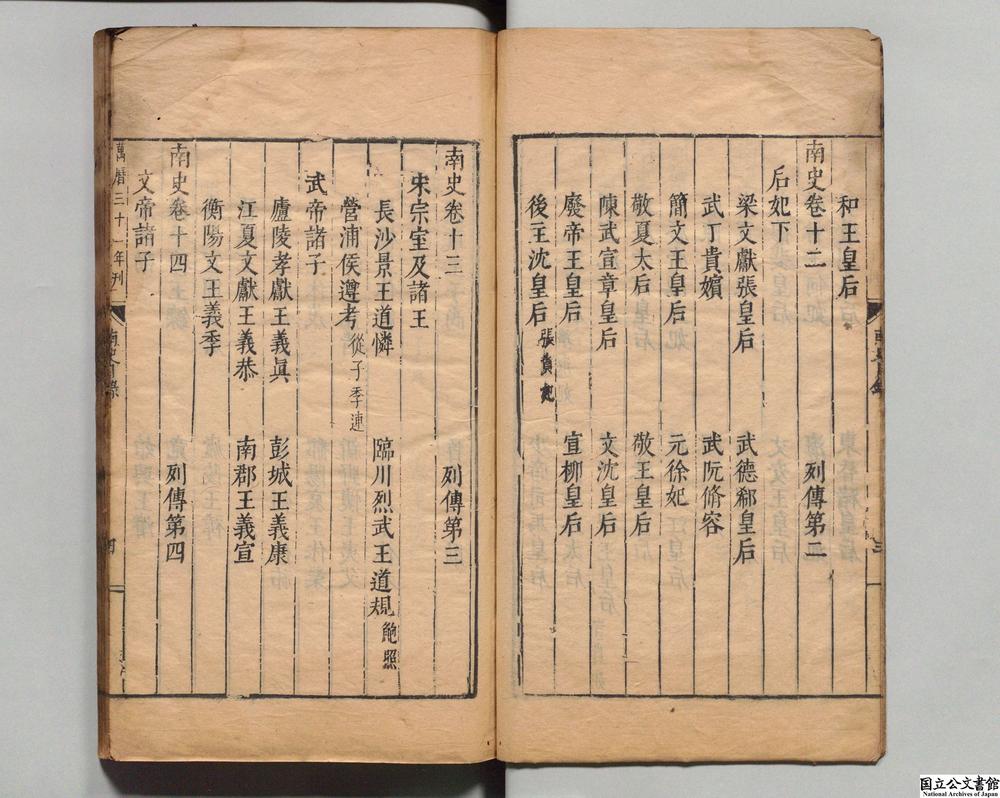 和王皇后
南史卷十二 列傳第二
后妃下
梁文獻張皇后 武德郗皇后
武丁貴嬪 武阮脩容
簡文王皇后 元徐妃
敬夏太后 敬王皇后
陳武宣章皇后 文沈皇后
廢帝王皇后 宣柳皇后
後主沈皇后 張貴妃
南史卷十三 列傳第三
宋宗室及諸王
長沙景王道憐 臨川烈武王道規 鮑照
營浦侯遵考 從子季連
武帝諸子
廬陵孝獻王義眞 彭城王義康
江夏文獻王義恭 南郡王義宣
衡陽文王義季
南史卷十四 列傳第四
文帝諸子
萬曆三十一年刊 南史目錄 四
国立公文書館
National Archives of Japan